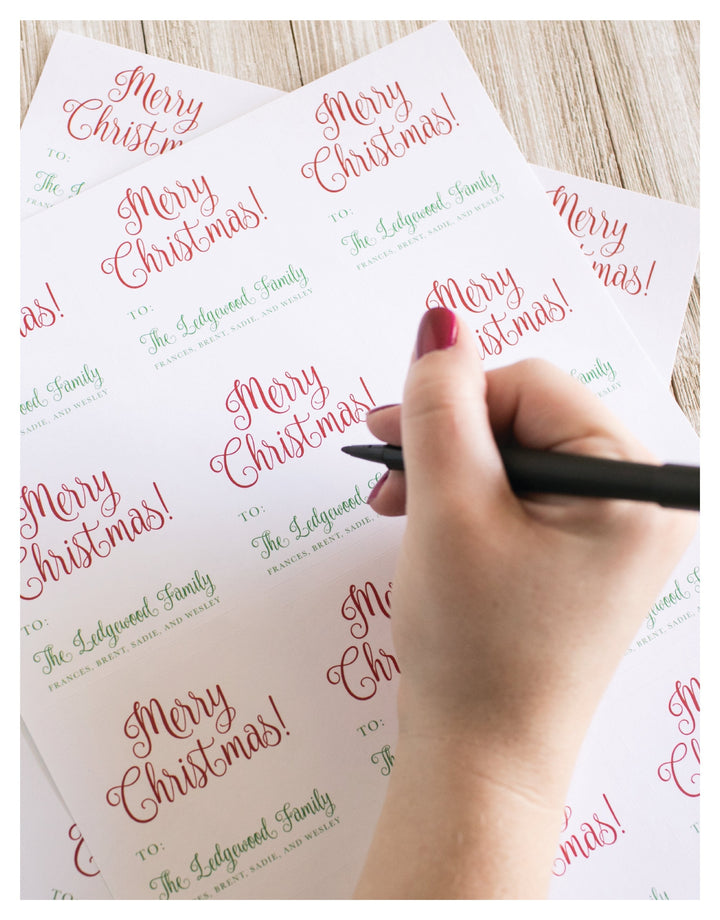 Merry
Christm
TO:
The
Merry
Christmas!
TO:
The Ledgewood Family
FRANCES, BRENT, SADIE, AND WESLEY
Merry
Christmas!
TO:
The Ledgewood Family
FRANCES, BRENT, SADIE, AND WESLEY
Merry
mas!
as!
Family
AND WESLEY
Merry
Christmas!
Family
WESLEY
Merry
Christmas!
TO:
The Ledgewood
FRANCES, BRENT, SADIE,
Merry
Christmas!
TO:
The Ledgewood Family
FRANCES, BRENT, SADIE, AND WESLEY
TO:
Merry
Christmas!
TO:
The Ledgewood Family
BRENT, SADIE, AND WESLEY
mas!
TO: